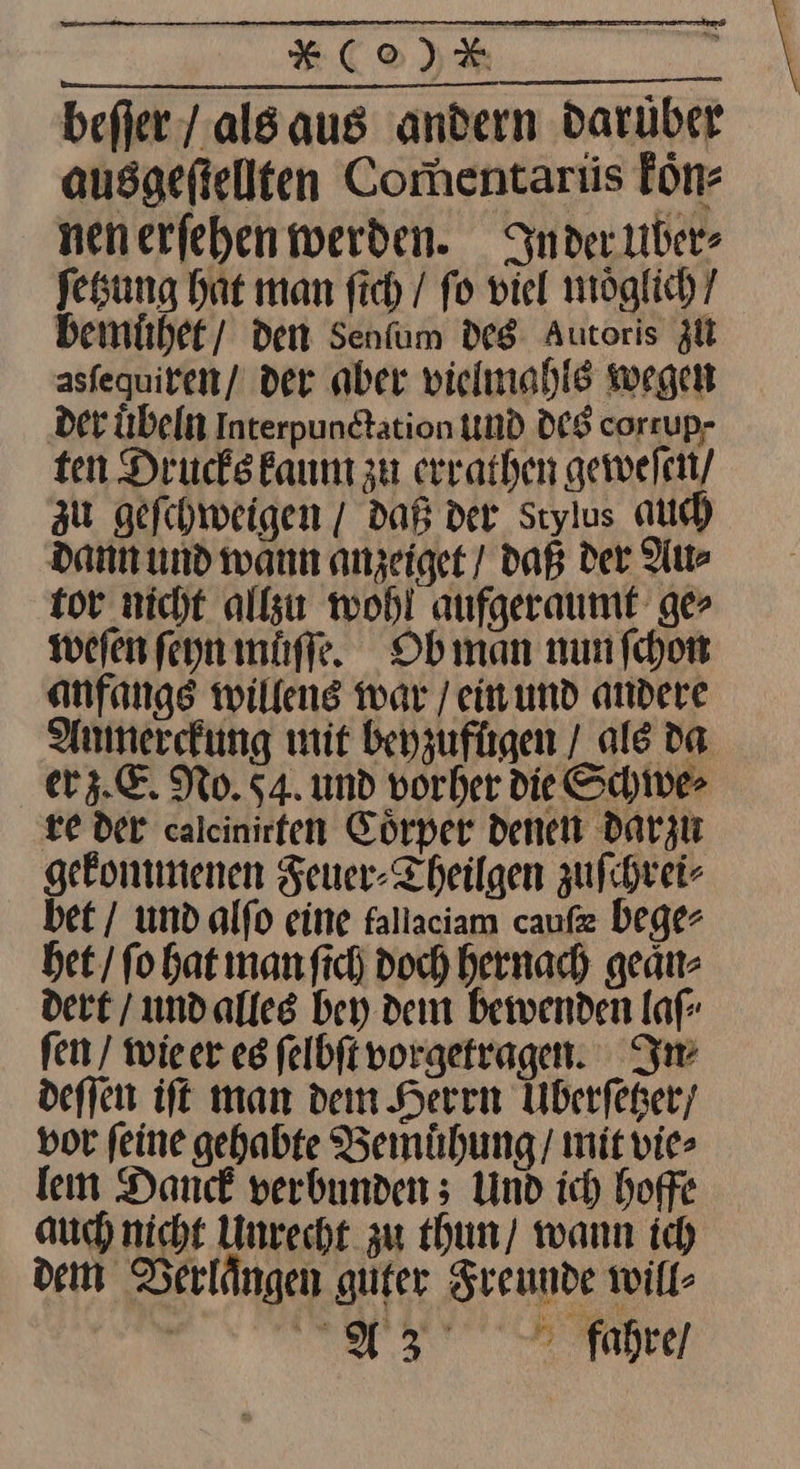 * ( o ) *
beſſer / als aus andern daruͤber
ausgeſtellten Com̃entariis koͤn⸗
nen erſehen werden. In der Uber⸗
ſetzung hat man ſich / ſo viel moͤglich /
bemuͤhet / den Senſum des Autoris zu
asſequiren / der aber vielmahls wegen
der uͤbeln Interpunctation und des corrup-
ten Drucks kaum zu errathen geweſen /
zu geſchweigen / daß der Stylus auch
dann und wann anzeiget / daß der Au⸗
tor nicht allzu wohl aufgeraumt ge⸗
weſen ſeyn muͤſſe. Ob man nun ſchon
anfangs willens war / ein und andere
Anmerckung mit beyzufuͤgen / als da
er z. E. No. 54. und vorher die Schwe⸗
re der calcinirten Coͤrper denen darzu
gekommenen Feuer⸗Theilgen zuſchrei⸗
bet / und alſo eine fallaciam cauſæ bege⸗
het / ſo hat man ſich doch hernach geaͤn⸗
dert / und alles bey dem bewenden laſ⸗
ſen / wie er es ſelbſt vorgetragen. In⸗
deſſen iſt man dem Herrn Uberſetzer /
vor ſeine gehabte Bemuͤhung / mit vie⸗
lem Danck verbunden; Und ich hoffe
auch nicht Unrecht zu thun / wann ich
dem Verlaͤngen guter Freunde will⸗
A 3 fahre /